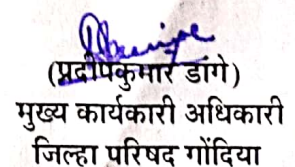 (प्रदीपकुमार डांगे)
मुख्य कार्यकारी अधिकारी
जिल्हा परिषद गोंदिया